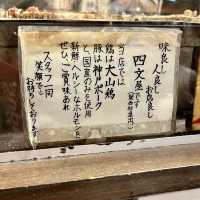 味良し
人良し
お店良し
四文屋です
当店では
鶏は大山鶏
豚は神戸ポーク
と、国産のみを使用
新鮮、ヘルシーなホルモンを
ぜひご賞味あれ
スタッフ一同
笑顔で
お待ちしております